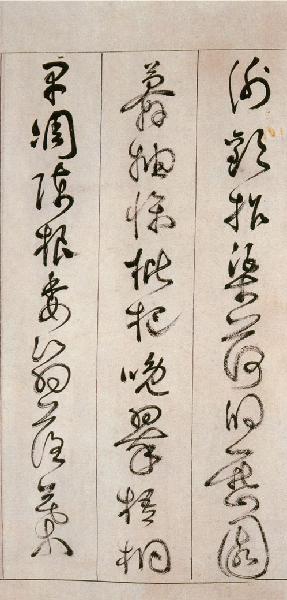 謝歡招渠荷的歷園
莽抽條枇杷晚翠梧桐
早凋陳根委翳落葉